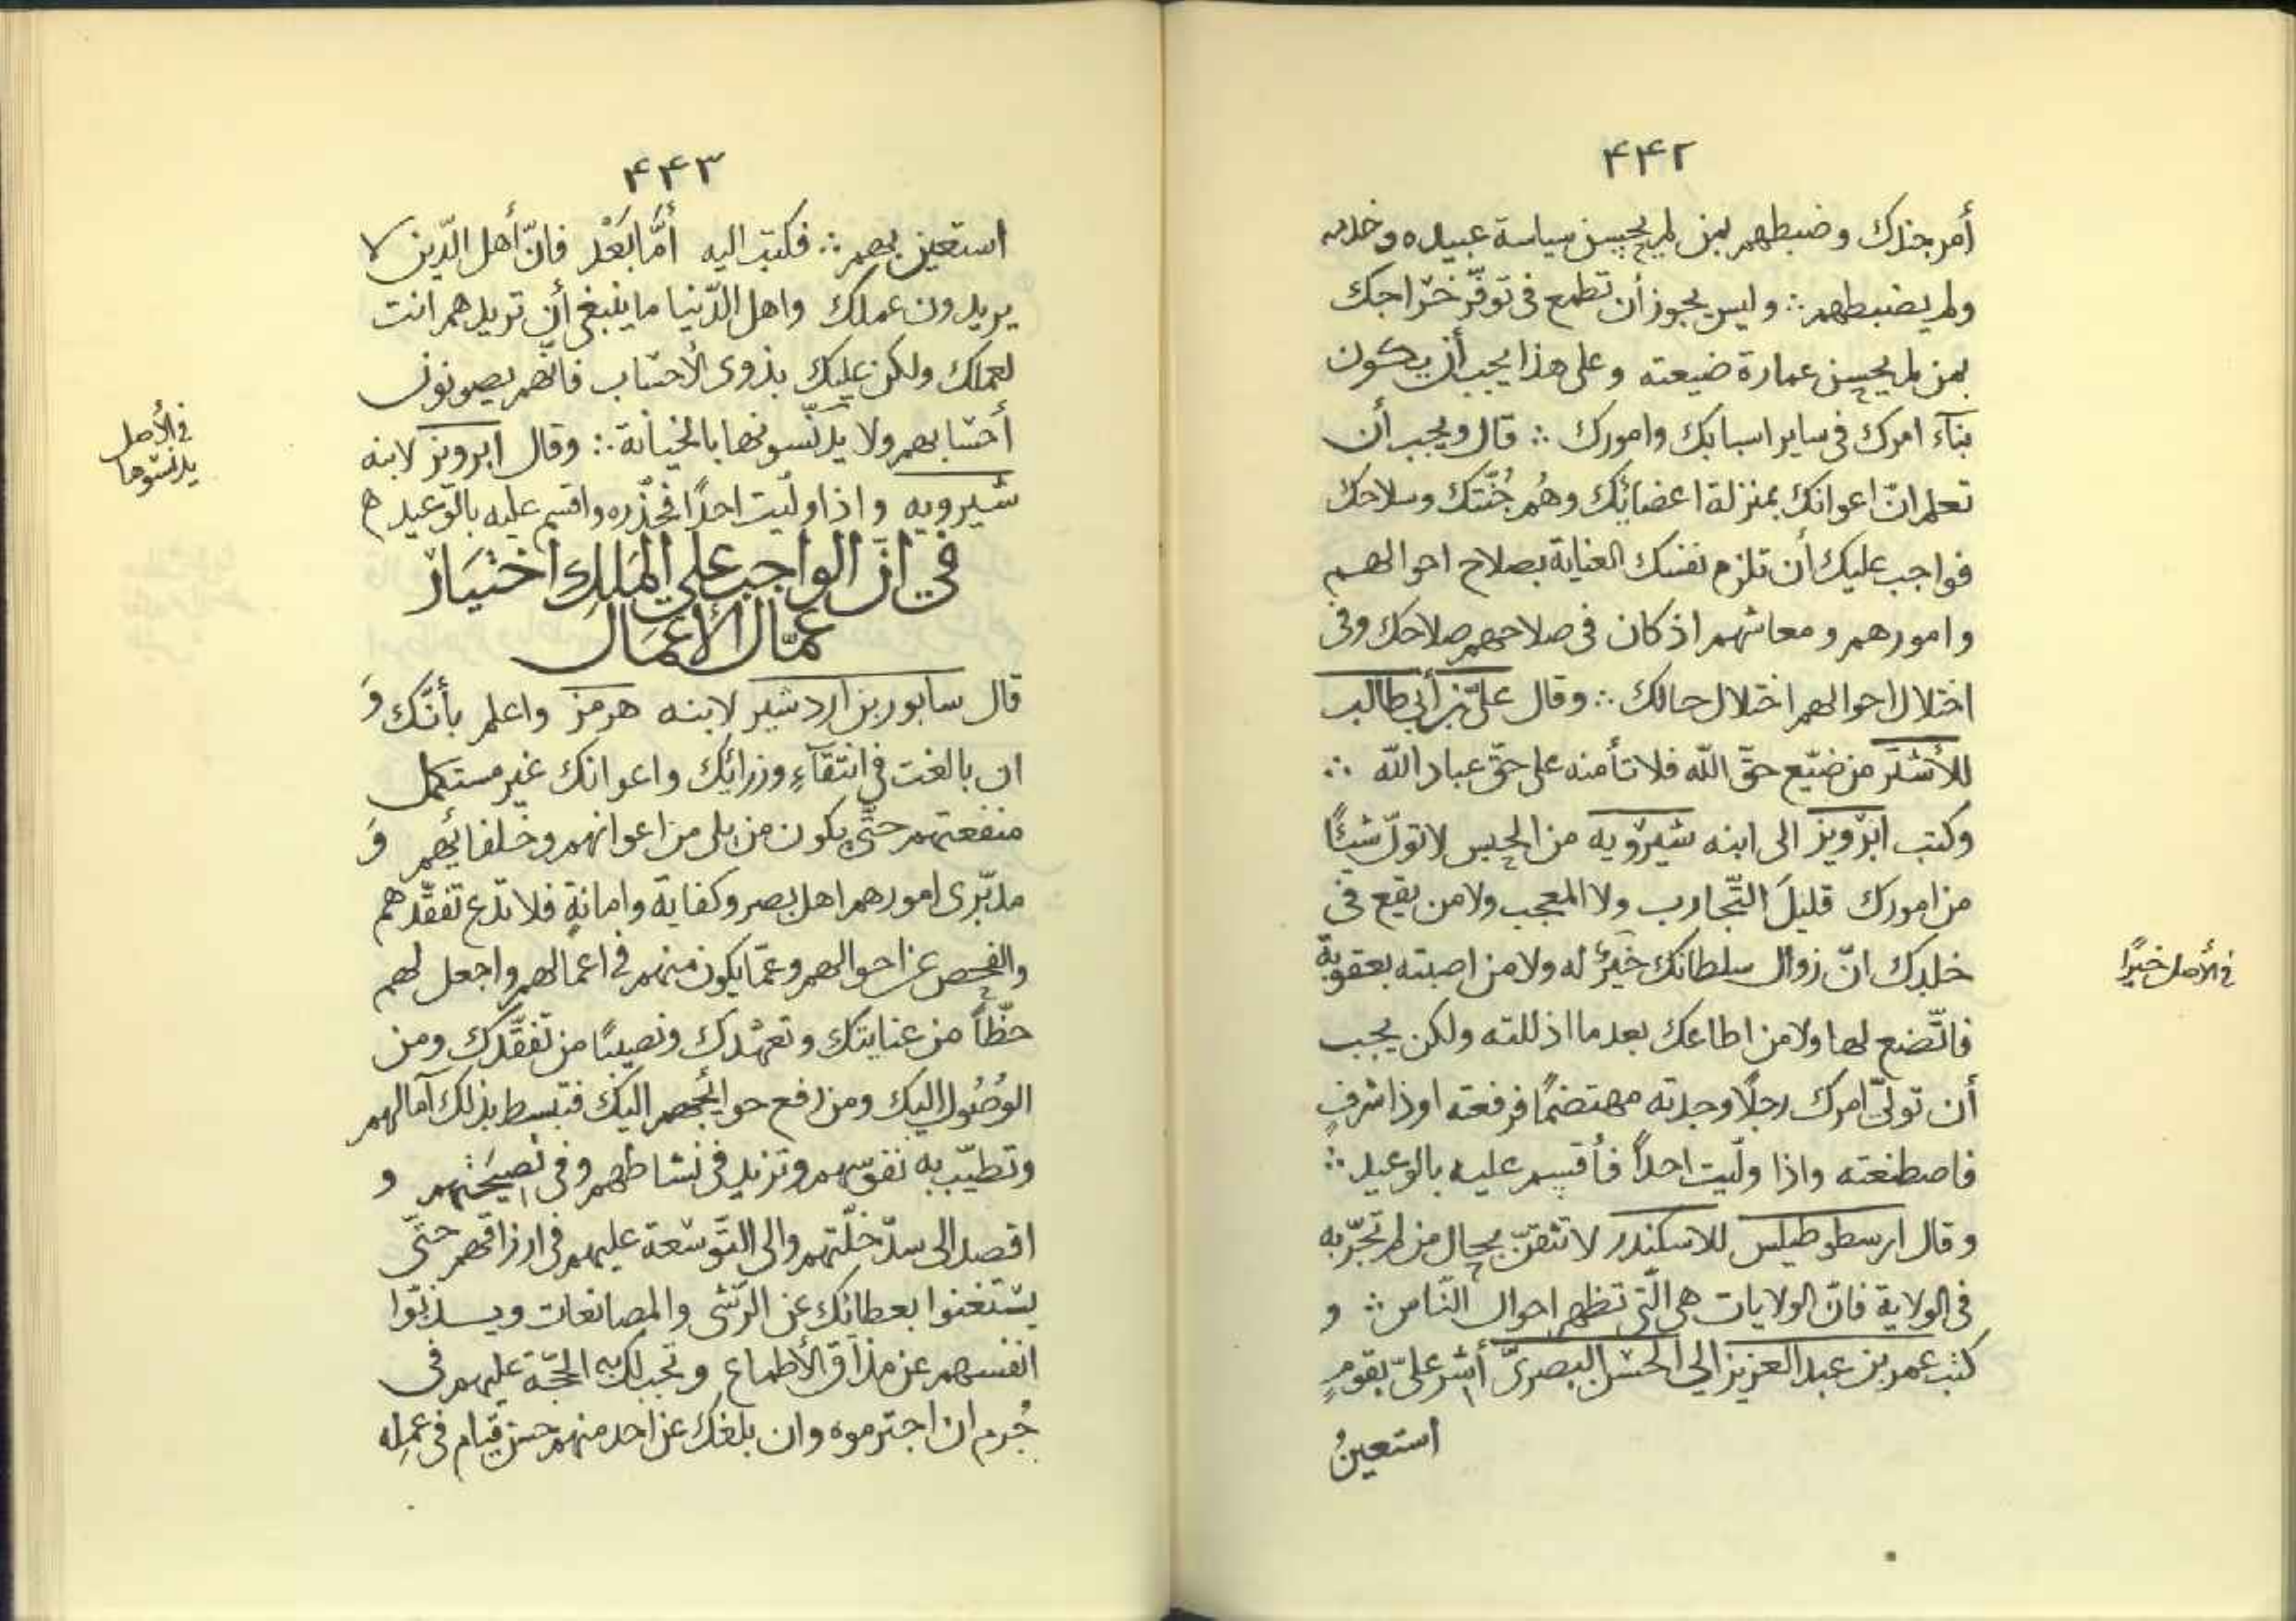 ۴۴۲
أمر جندك وضبطهم بمن لم يحسن سياسة عبيده وخدمه
ولم يضبطهم ∴ وليس يجوز أن تطمع فى توفّر خراجك
بمن لم يحسن عمارة ضيعته وعلى هذا يجب أن يكون
بنآء امرك فى ساير اسبابك وامورك ∴ قال ويجب أن
تعلم انّ اعوانك بمنزلة اعضائك وهُم جُنّتك وسلاحك
فواجب عليك أن تلزم نفسك العناية بصلاح احوالهم
وامورهم ومعاشهم اذ كان فى صلاحهم صلاحك وفى
اختلال احوالهم اختلال حالك ∴ وقال علىّ بن أبى طالب
للأشتر من ضيّع حقّ اللّه فلا تأمنه على حقّ عباد اللّه ∴
وكتب ابرْويز الى ابنه شيرْويه من الحبس لا تولّ شيئًا
من امورك قليلَ التّجارب ولا المعجب ولا من يقع فى
خلدك انّ زوال سلطانك خيرٌ له ولا من اصبته بعقوبة
فاتّضع لها ولا من اطاعك بعد ما اذللته ولكن يجب
أن تولّى امرك رجلًا وجدته مهتضمًا فرفعته او ذا شرفٍ
فاصطنعته واذا ولّيت احدًا فأقسم عليه بالوعيد ∴
وقال ارسطوطيلس للاسكندر لا تثقنّ بحال من لم تجرّبه
فى الولاية فانّ الولايات هى الّتى تظهر احوال النّاس ∴ و
كتب عمر بن عبد العزيز الى الحسن البصرىّ أشر علىّ بقومٍ
استعينُ
فى الأصل خيرًا
۴۴۳
استعين بهم ∴ فكتب اليه أمّا بَعْد فانّ أهل الدّين لا
يريدون عملك واهل الدّنيا ما ينبغى أن تريدهم انت
لعملك ولكن عليك بذوى الأحساب فانّهم يصونون
أحسابهم ولا يدنّسونها بالخيانة ∴ وقال ابرويز لابنه
شيرويه واذا ولّيت احدًا فحذّره واقسم عليه بالوعيد ه
فى انّ الواجب على المَلِك اختيَار
عمّال الأعمَال
قال سابور بن اردشير لابنه هرمز واعلم بأنّك وَ
ان بالغت فى انتقآءِ وزرائك واعوانك غير مستكمل
منفعتهم حتّى يكون من يلى من اعوانهم وخلفائهم وَ
مدبّرى امورهم اهل بصر وكفاية وامانةٍ فلا تدع تفقّدهم
والفحص عن احوالهم وعمّا يكون منهم فى اعمالهم واجعل لهم
حظّاً من عنايتك وتعهّدك ونصيبًا من تفقّدك ومن
الوُصُول اليك ومن رفع حوائجهم اليك فتبسط بذلك آمالهم
وتطيّب به نفوسهم وتزيد فى نشاطهم وفى نصيحَتهم و
اقصد الى سدّ خلّتهم والى التّوسعة عليهم فى ارزاقهم حتّى
يستغنوا بعطائك عن الرّشى والمصانعات ويـ
انفسهم عن مذاق الأطماع وتجب لك به الحجّة عليهم فى
جُرم ان اجترموه وان بلغك عن احد منهم حسن قيام فى عمله
فى الأصل
يدنّسوها